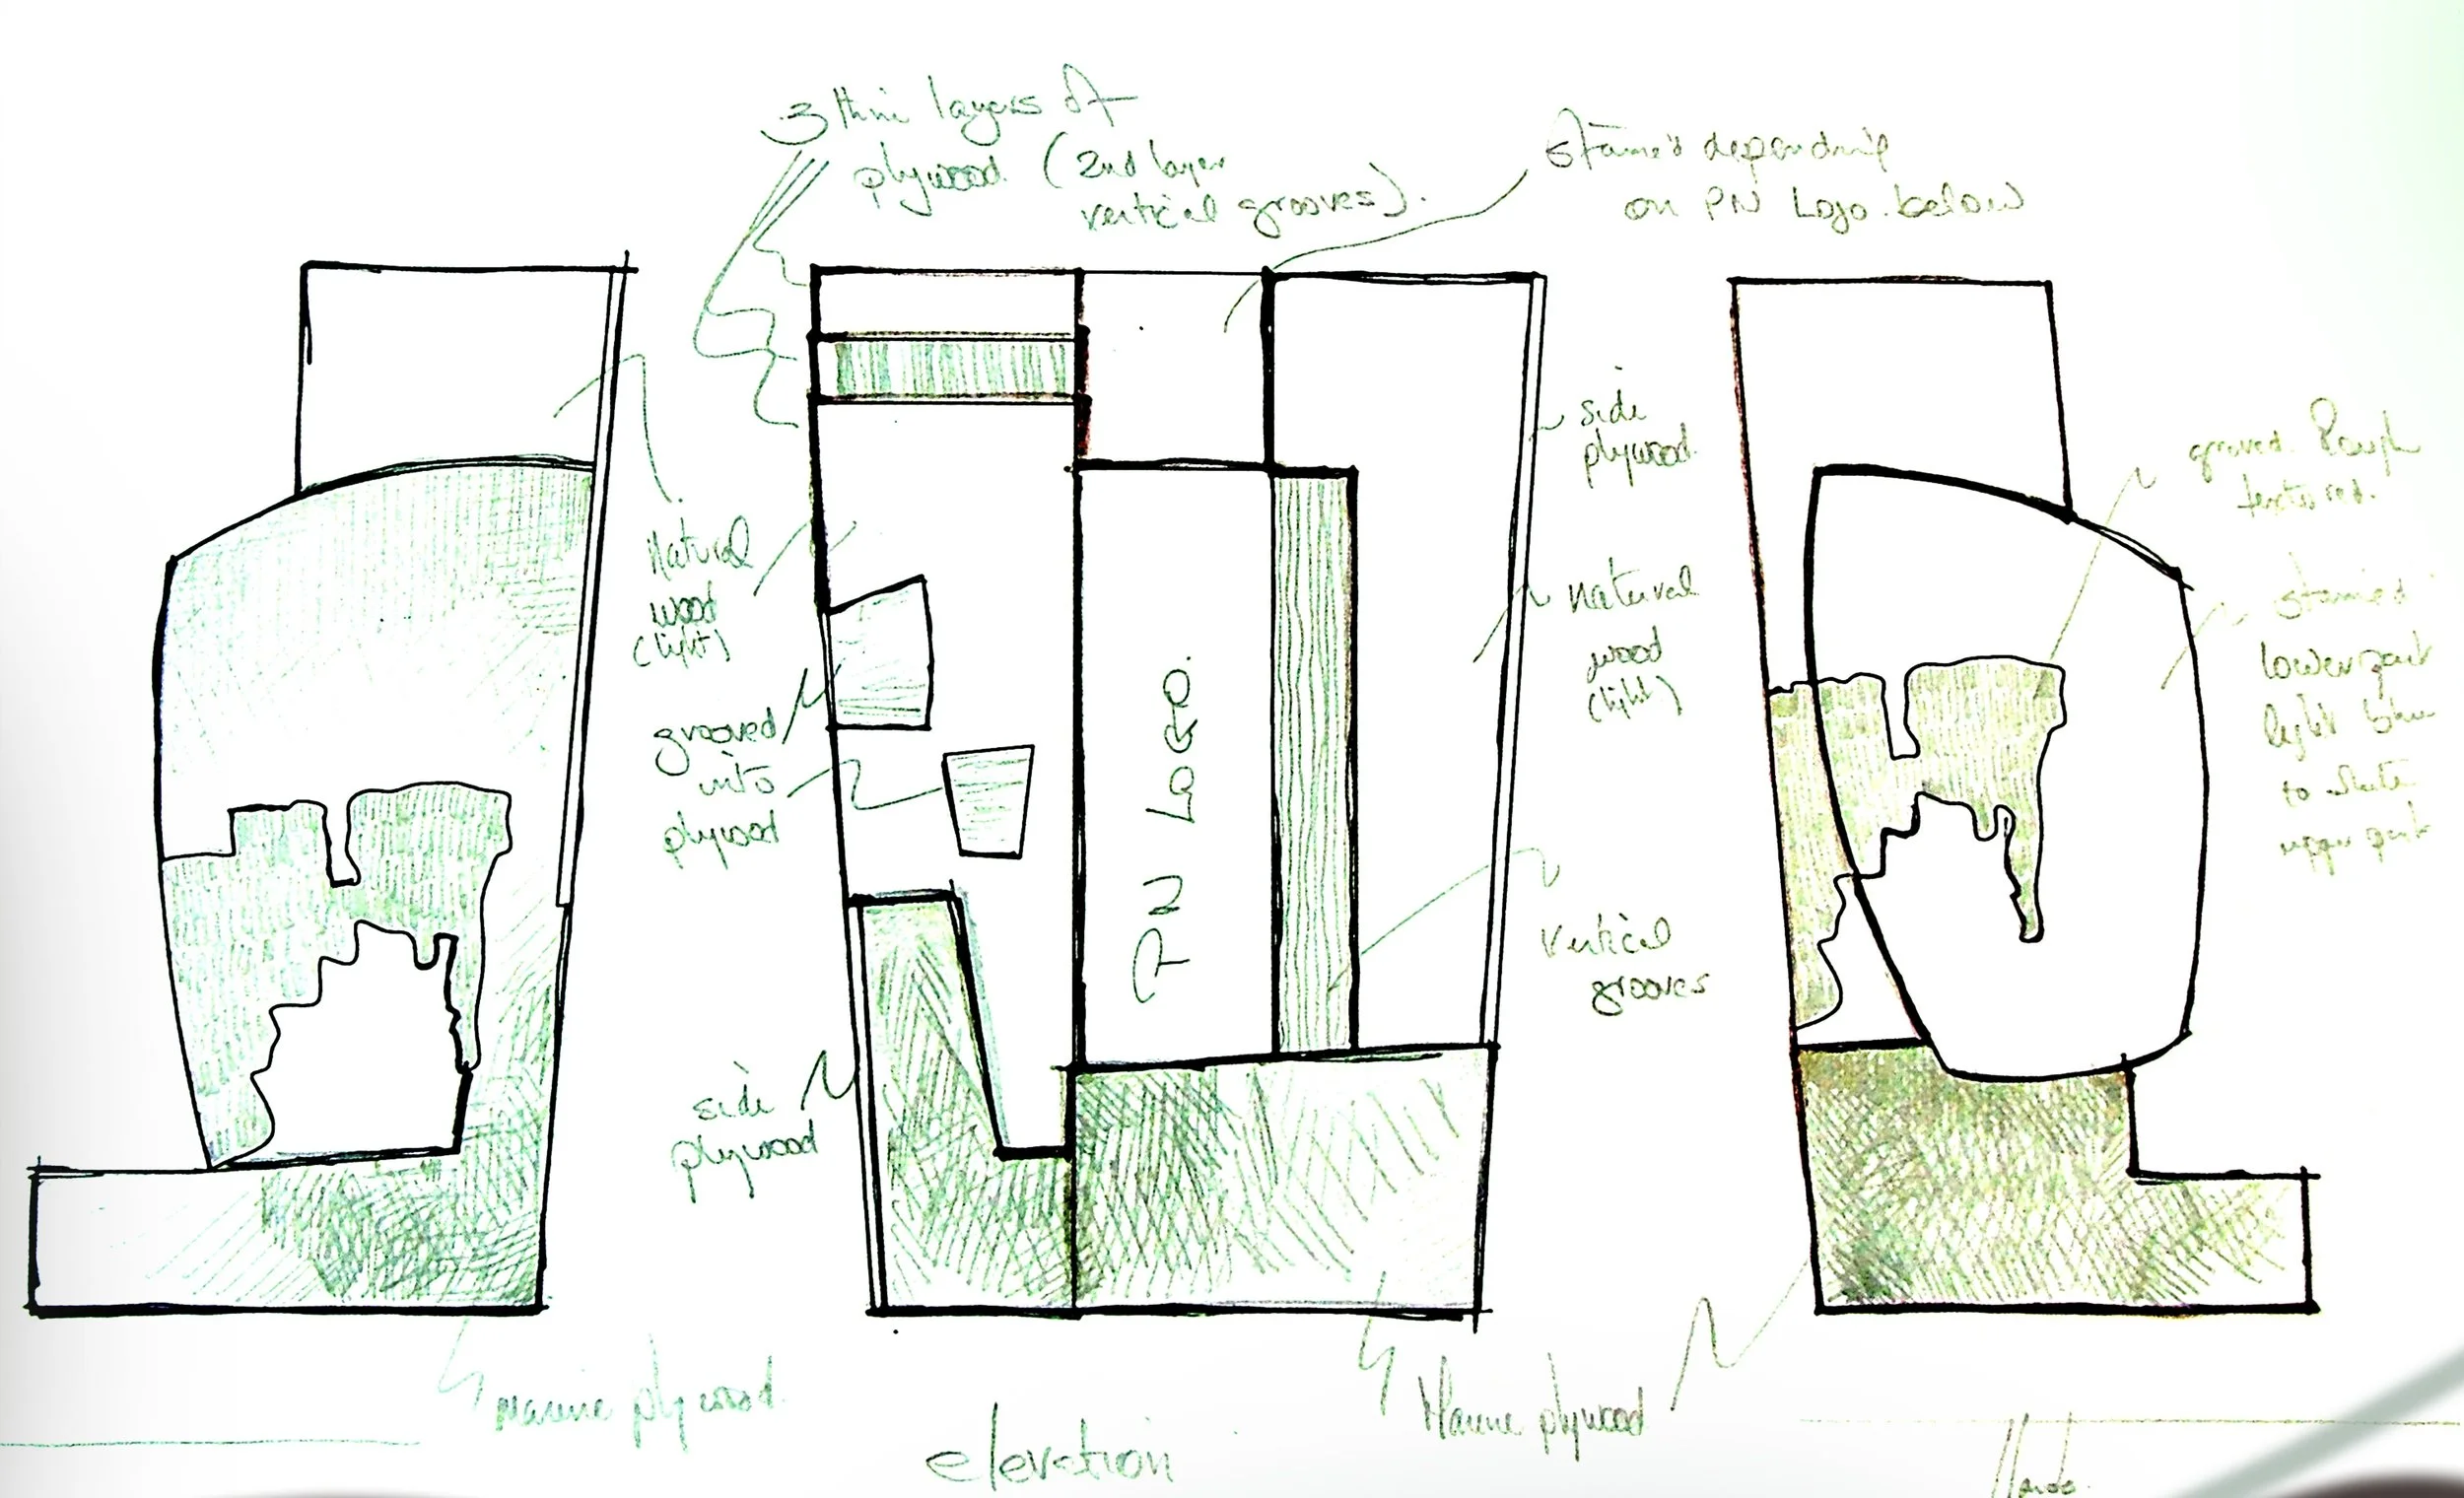 3 thin layers of
plywood (2nd layer
vertical grooves).
Stained depending
on PN Logo below
side
plywood
grooved Rough
textured.
Natural
wood
(light)
natural
wood
(light)
stained
lower part
light blue
to white
upper part
grooved
into
plywood
PN LOGO.
vertical
grooves
side
plywood
marine plywood.
Marine plywood
elevation